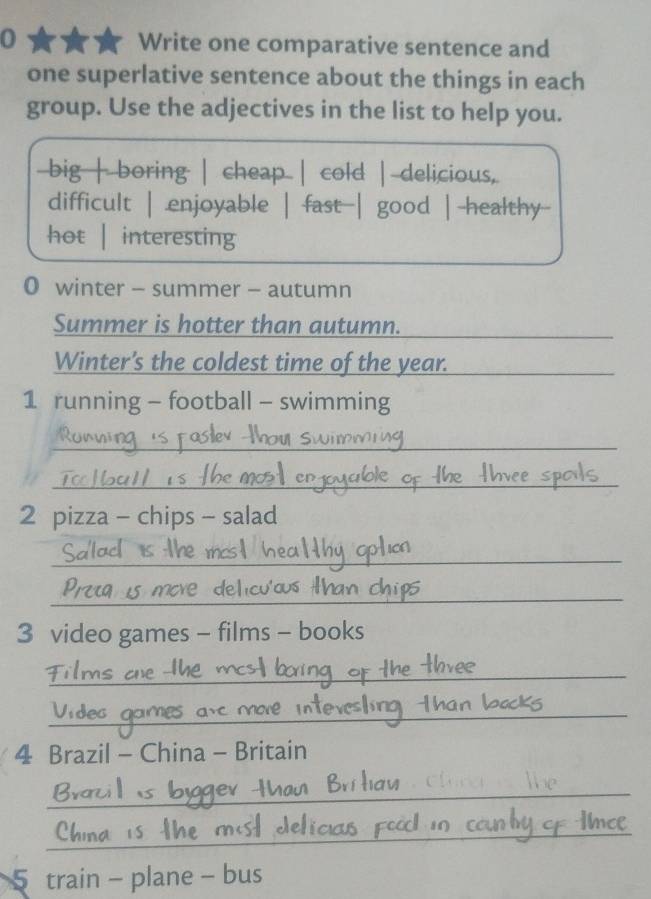 0 ★★★ Write one comparative sentence and
one superlative sentence about the things in each
group. Use the adjectives in the list to help you.
big | boring | cheap | cold | delicious,
difficult | enjoyable | fast | good | healthy
hot | interesting
0 winter – summer – autumn
Summer is hotter than autumn.
Winter's the coldest time of the year.
1 running – football – swimming
Running is faster than swimming
Football is the most enjoyable of the three sports
2 pizza – chips – salad
Salad is the most healthy option
Pizza is more delicious than chips
3 video games – films – books
Films are the most boring of the three
Video games are more interesting than books
4 Brazil – China – Britain
Brazil is bigger than China is the
China is the most food in of three
5 train – plane – bus